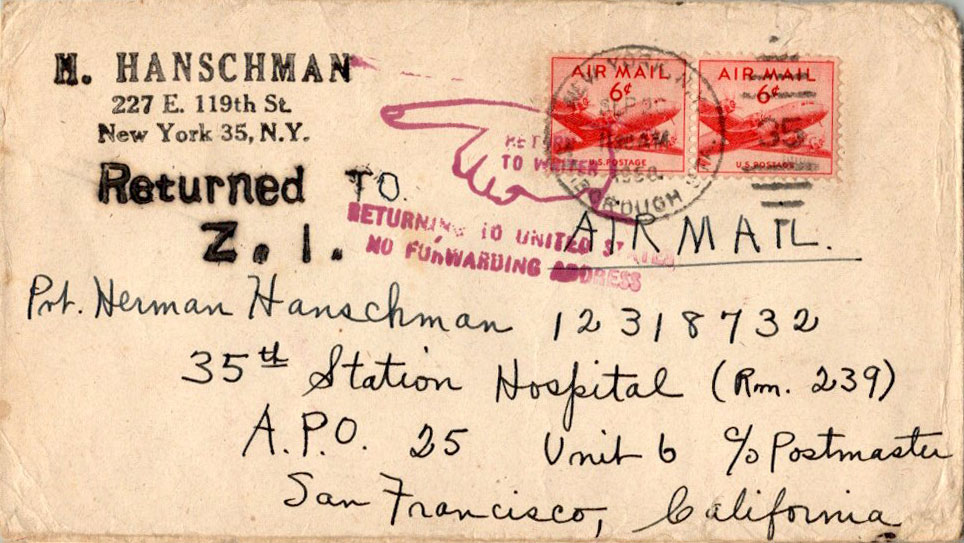 H. HANSCHMAN
227 E. 119th St.
New York 35, N.Y.
AIR MAIL
6¢
U.S. POSTAGE
AIR MAIL
6¢
U.S. POSTAGE
NEW YORK, N.Y.
SEP
AM
1950
35
RETURN
TO WRITER
Returned TO
Z.I.
RETURNING TO UNITED STATES
NO FORWARDING ADDRESS
AIR MAIL.
Pvt. Herman Hanschman 12318732
35th Station Hospital (Rm. 239)
A.P.O. 25 Unit 6 c/o Postmaster
San Francisco, California